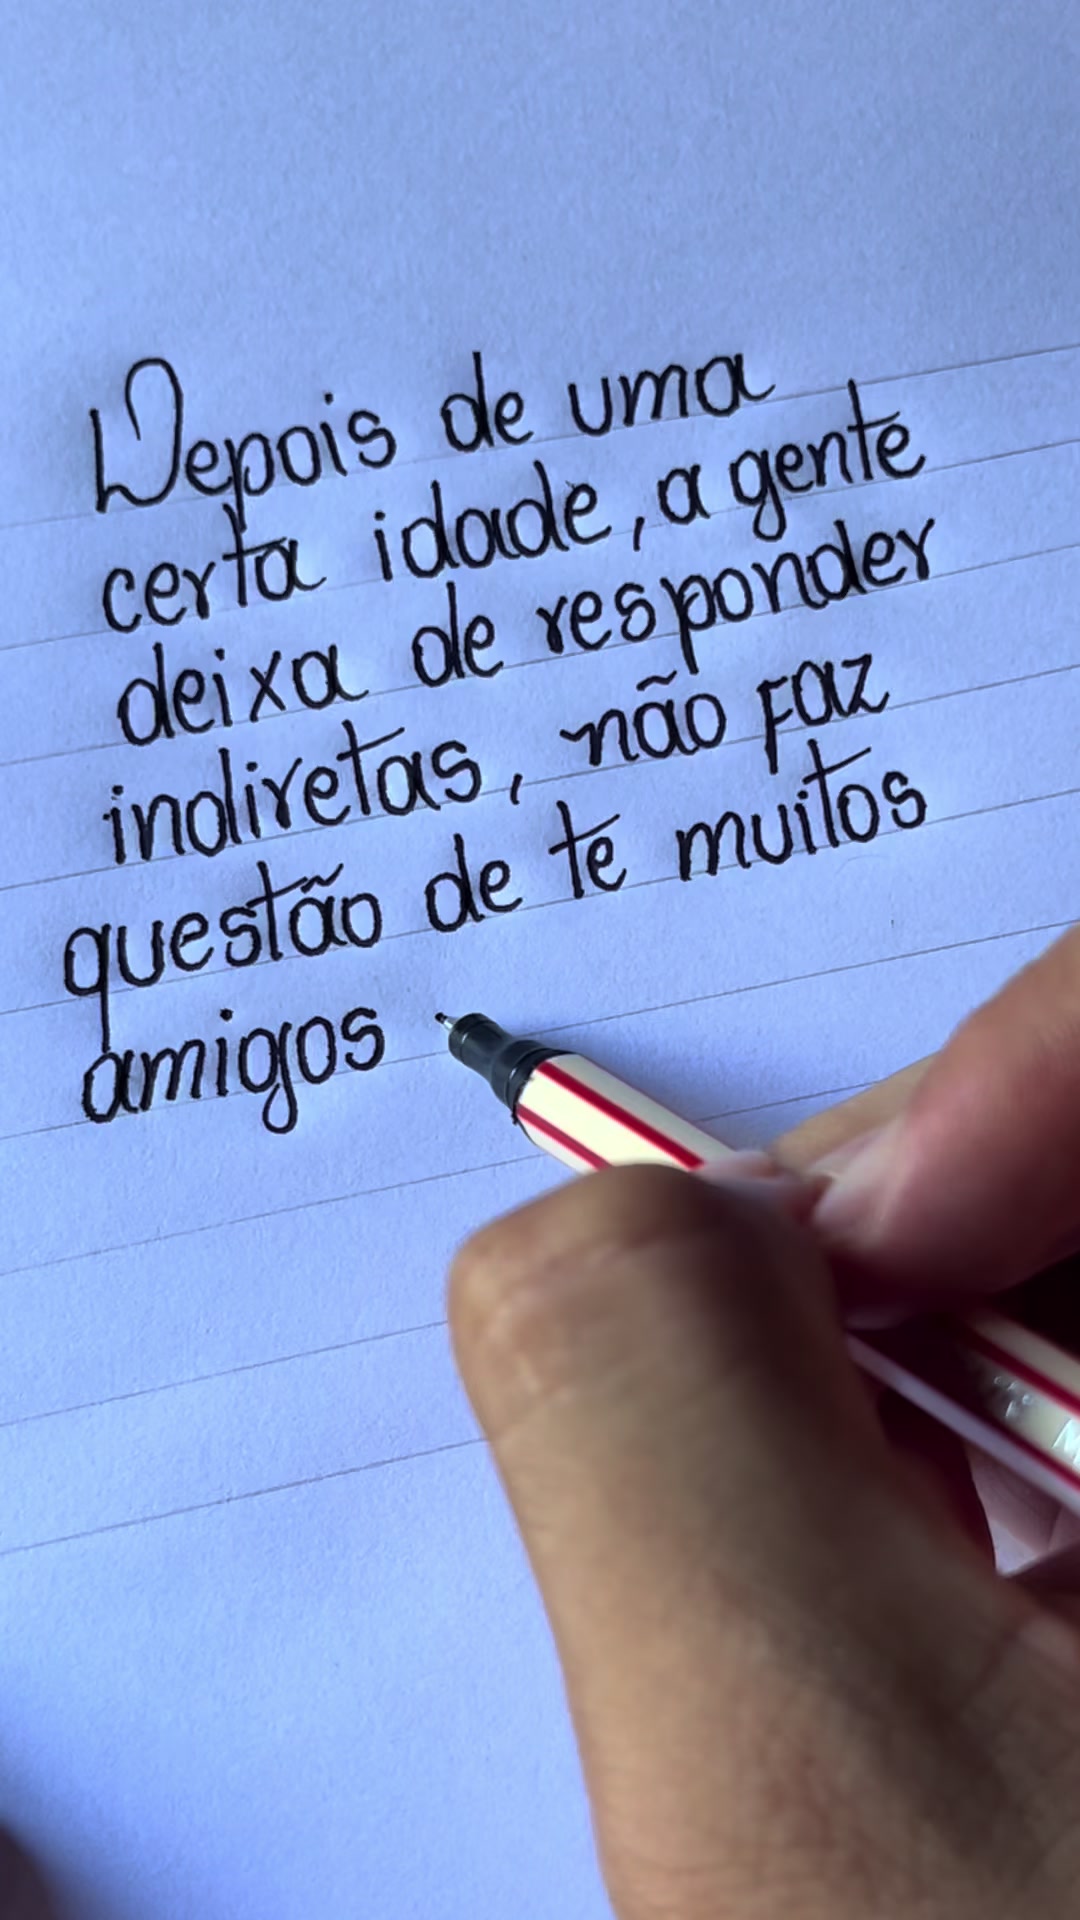 Depois de uma
certa idade, a gente
deixa de responder
indiretas, não faz
questão de te muitos
amigos